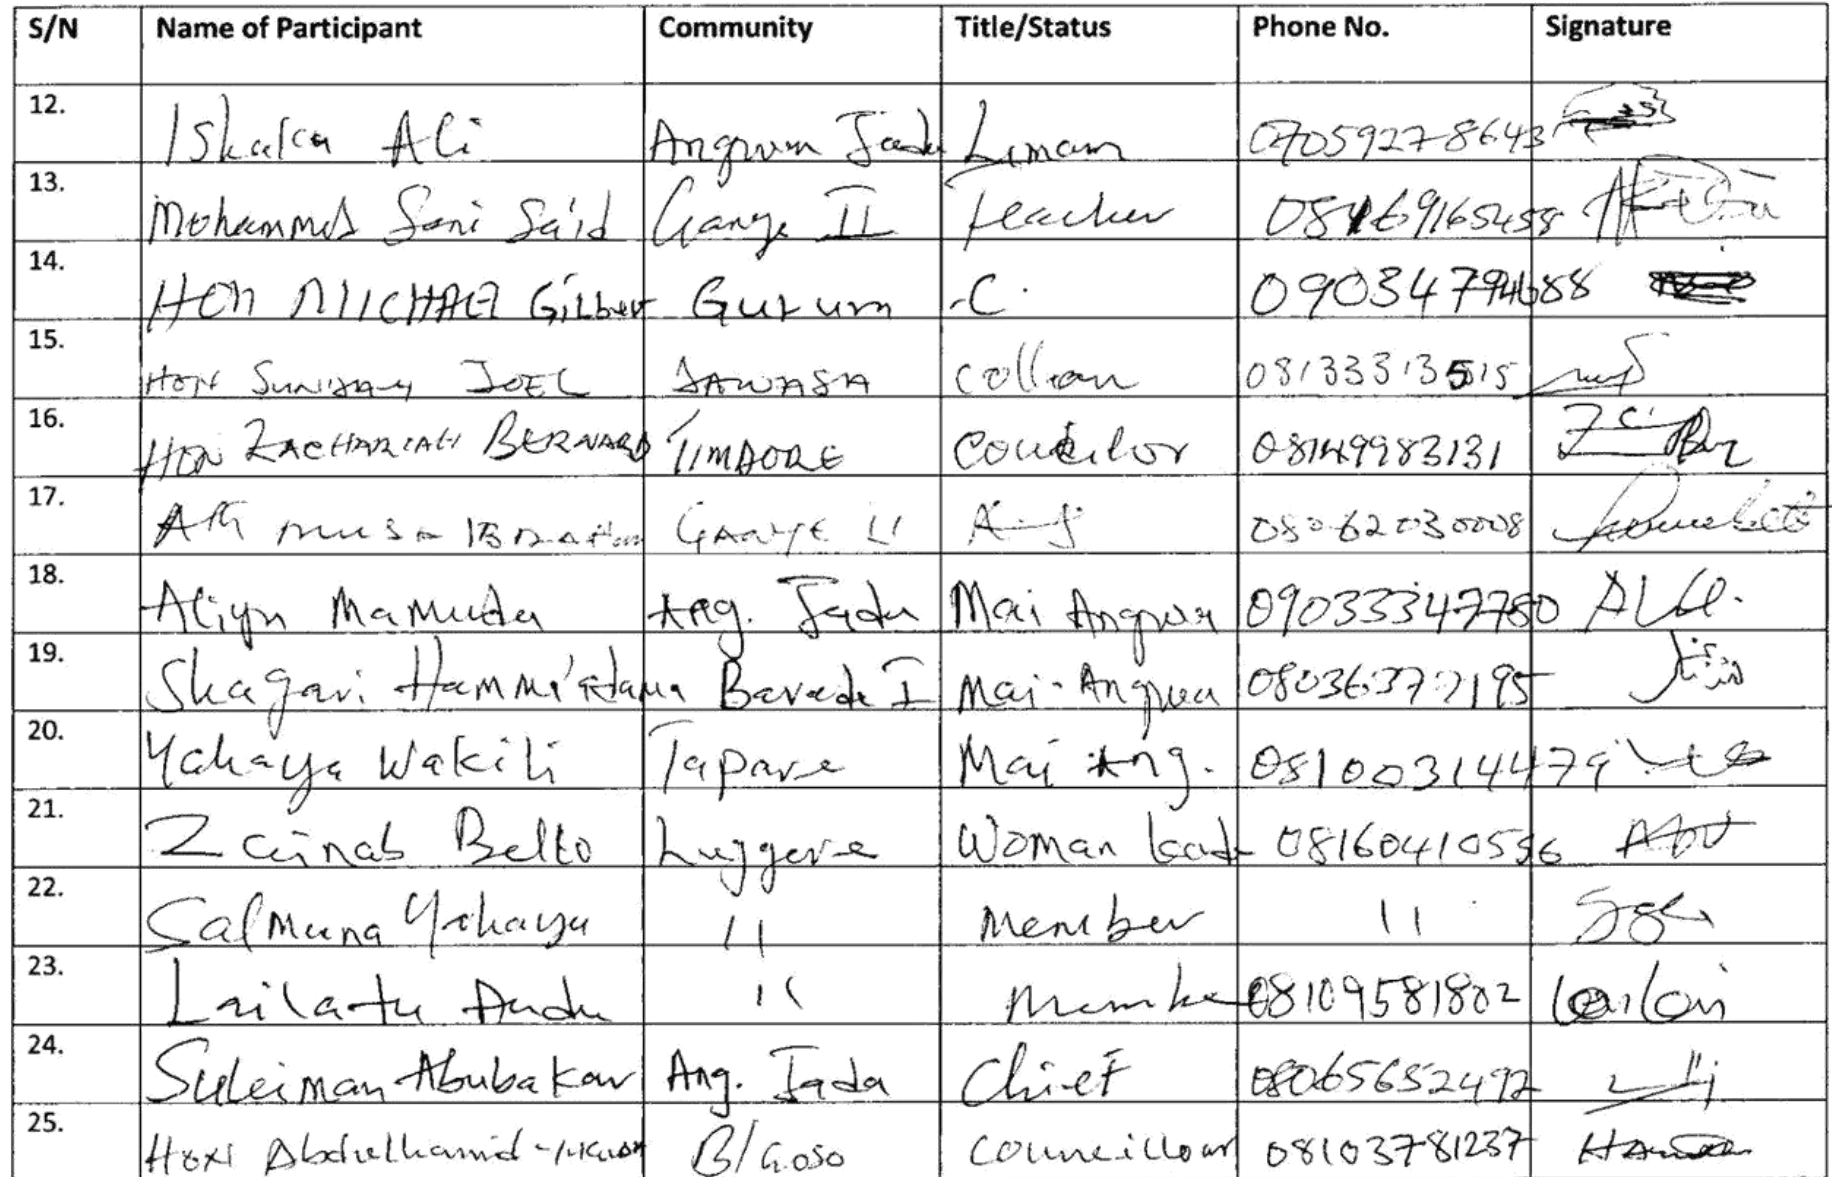 S/N Name of Participant Community Title/Status Phone No. Signature
12. Ishaka Ali Angwan Jada Limam 07059278643
13. Mohammed Sani Sa'id Ganye II teacher
14. HON MICHAEL Gilbert Gurum C.
15. HON SUNDAY JOEL 08133313515
16. HON ZACHARIAH BERNARD TIMDORE 08149983131
17. MUSA IBRAHIM GANYE II 08062030008
18. Aliyu Mamuda Ang. Jada Mai Angwa 09033347780
19. Shagari Hamma'adama Mai-Angwa 08036377195
20. Yahaya Wakili Tapare Mai Ang. 08100314479
21. Zainab Bello Luggere Woman lead 08160410556
22. Salmuna Yahaya 11 Member 11
23. Lailatu Audu 11 Member 08109581802
24. Suleiman Abubakar Ang. Jada Chief 08065652492
25. HON Abdulhamid B/Goso Councillour 08103781237